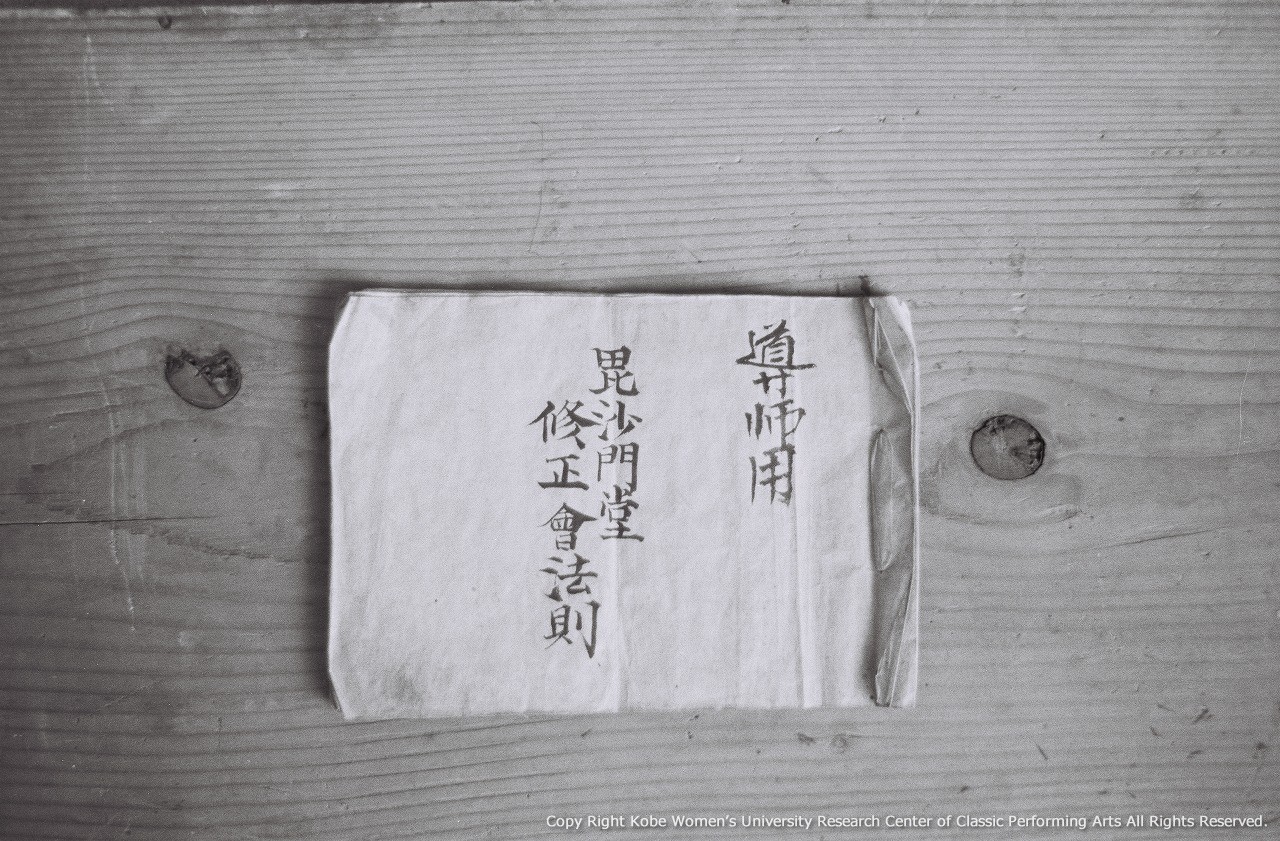 導師用
毘沙門堂
修正會法則
Copy Right Kobe Women's University Research Center of Classic Performing Arts All Rights Reserved.